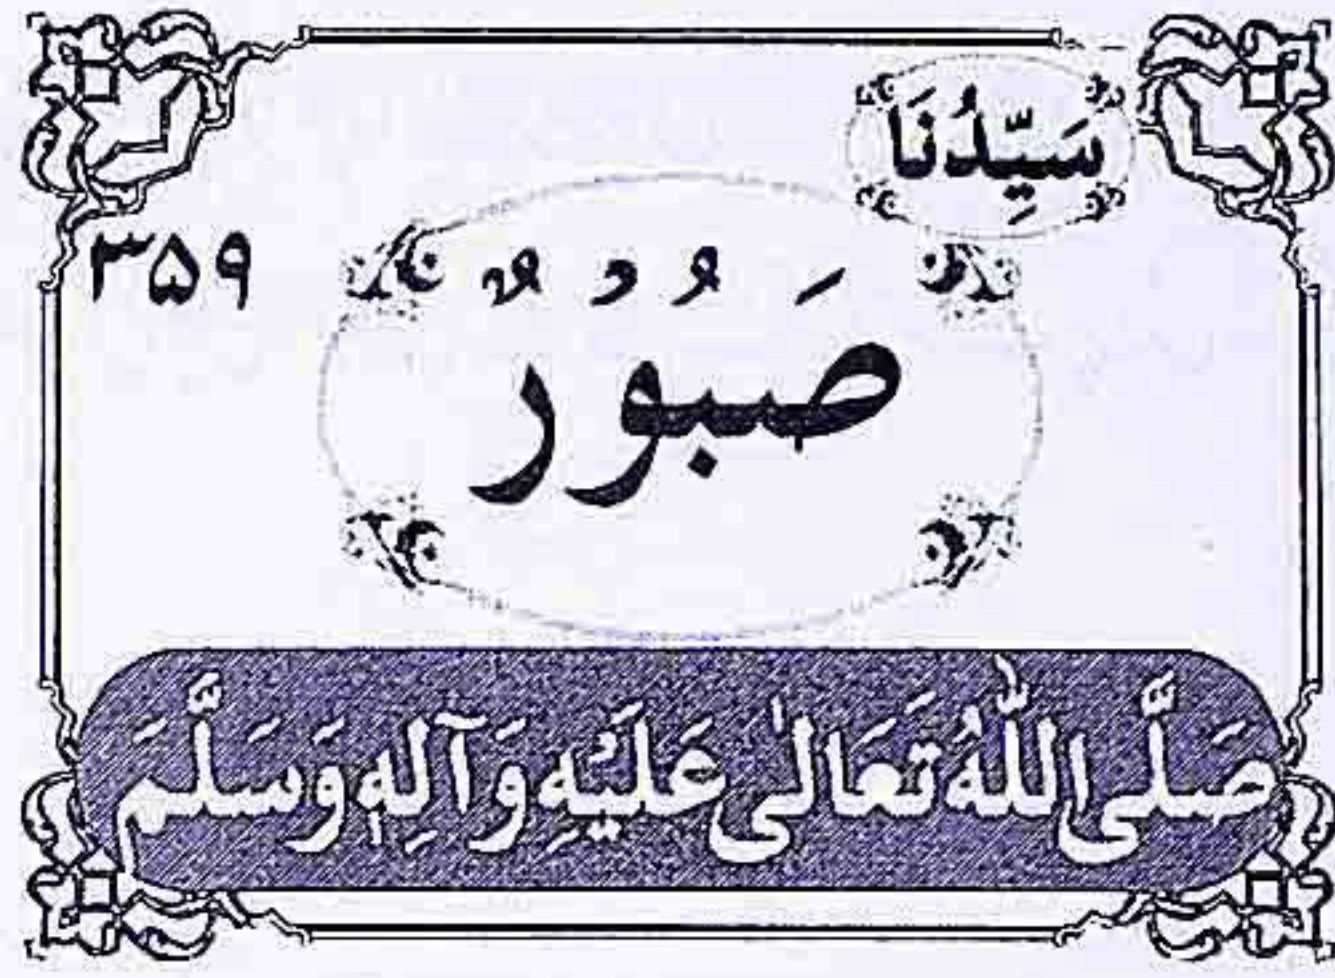 سَيِّدُنَا
صَبُورٌ
۳۵۹
صَلَّى اللّٰهُ تَعَالٰى عَلَيْهِ وَآلِهٖ وَسَلَّمَ